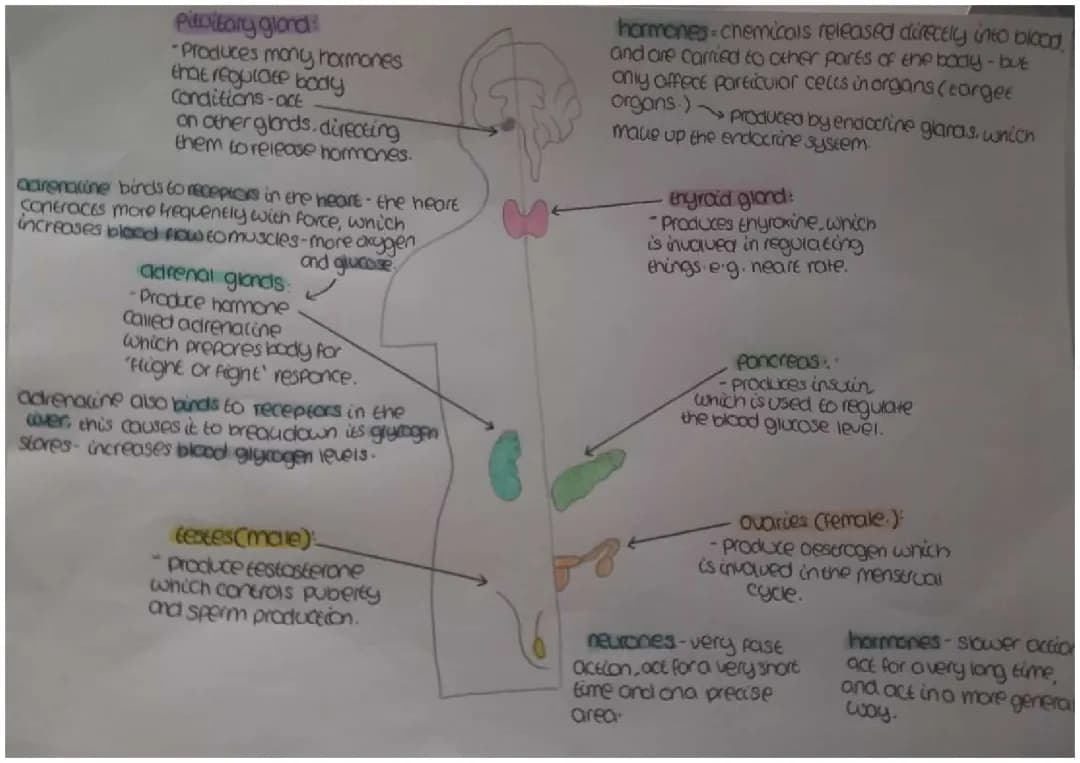 Pituitary gland:
- Produces many hormones
that regulate body
conditions - act
on other glands, directing
them to release hormones.
hormones = chemicals released directly into blood,
and are carried to other parts of the body - but
only affect particular cells in organs (target
organs.) → Produced by endocrine glands, which
make up the endocrine system.
adrenaline binds to receptors in the heart - the heart
contracts more frequently with force, which
increases blood flow to muscles - more oxygen
and glucose.
thyroid gland:
- Produces thyroxine, which
is involved in regulating
things. e.g. heart rate.
adrenal glands:
- Produce hormone
called adrenaline
which prepares body for
'flight or fight' responce.
adrenaline also binds to receptors in the
liver, this causes it to breakdown its glycogen
stores - increases blood glycogen levels.
Pancreas:
- produces insulin
which is used to regulate
the blood glucose level.
testes (male):
- produce testosterone
which controls puberty
and sperm production.
ovaries (female.):
- produce oestrogen which
is involved in the menstrual
cycle.
neurones - very fast
action, act for a very short
time and on a precise
area.
hormones - slower action
act for a very long time,
and act in a more general
way.